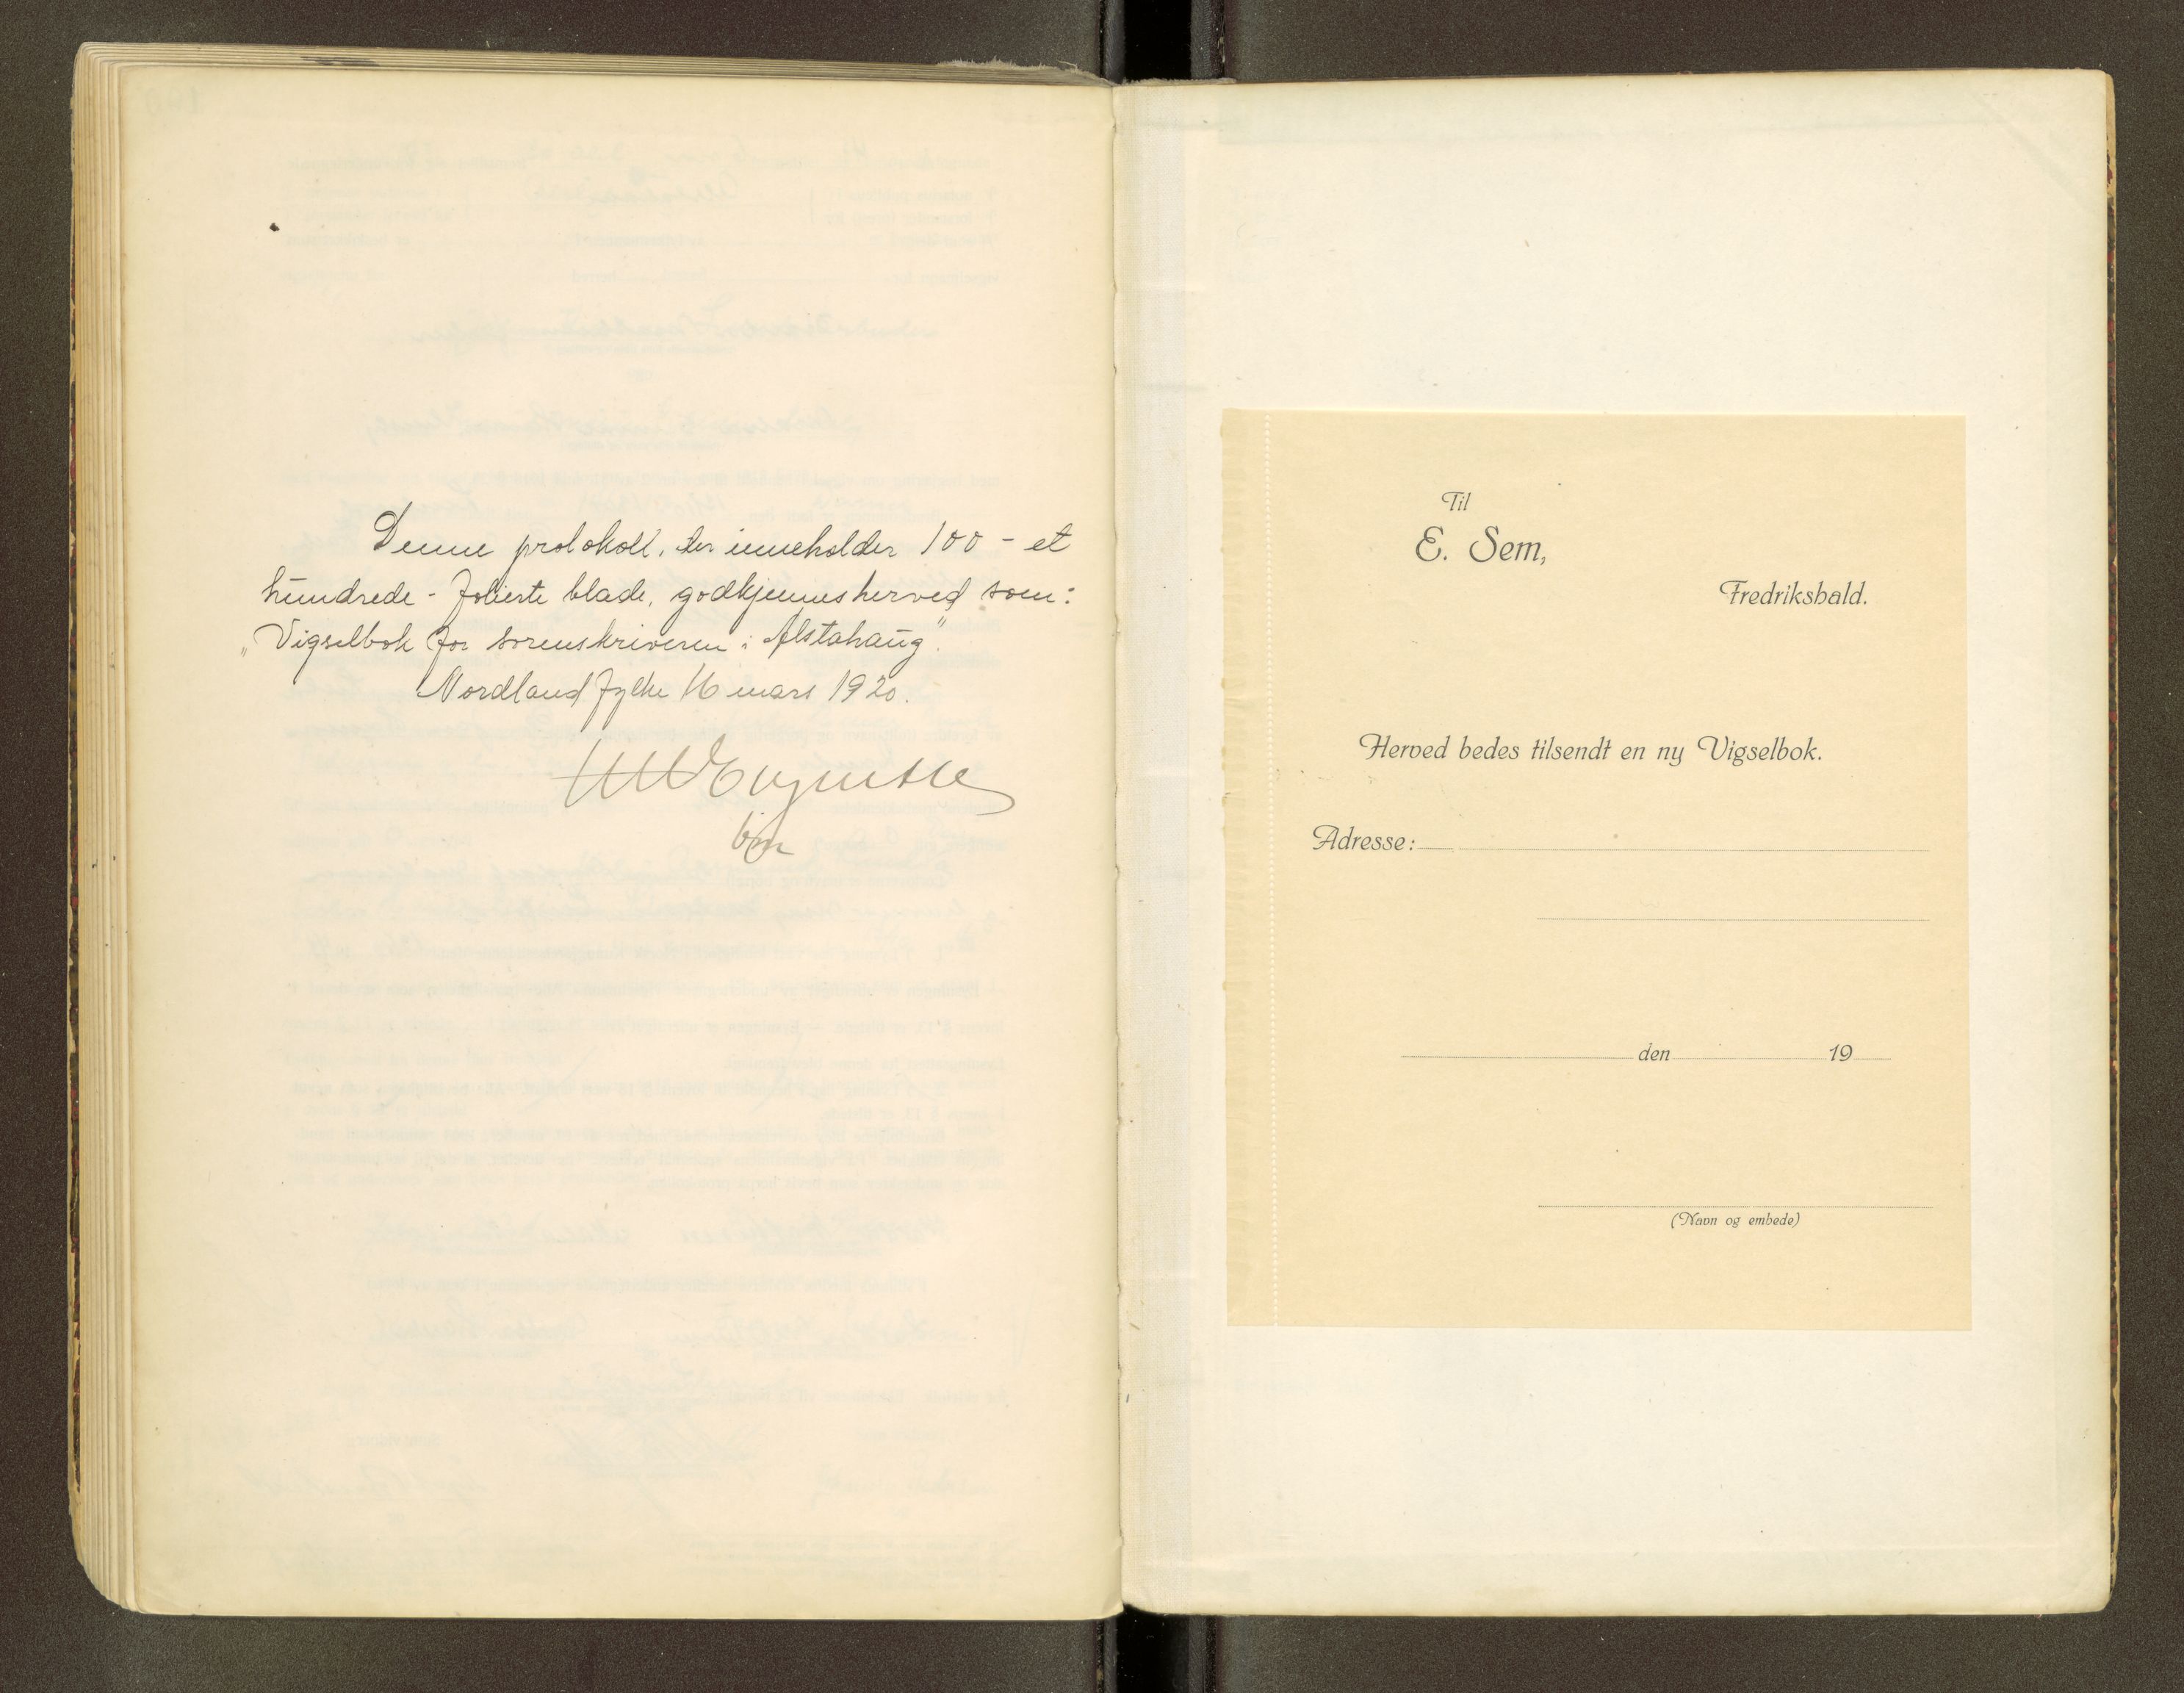 Denne protokoll, der inneholder 100 - et
hundrede - folierte blade, godkjennes herved som:
„Vigselbok for sorenskriveren i Alstahaug".
Nordland fylke 16 mars 1920.
Til
E. Sem,
Fredrikshald.
Herved bedes tilsendt en ny Vigselbok.
Adresse:
den 19
(Navn og embede)